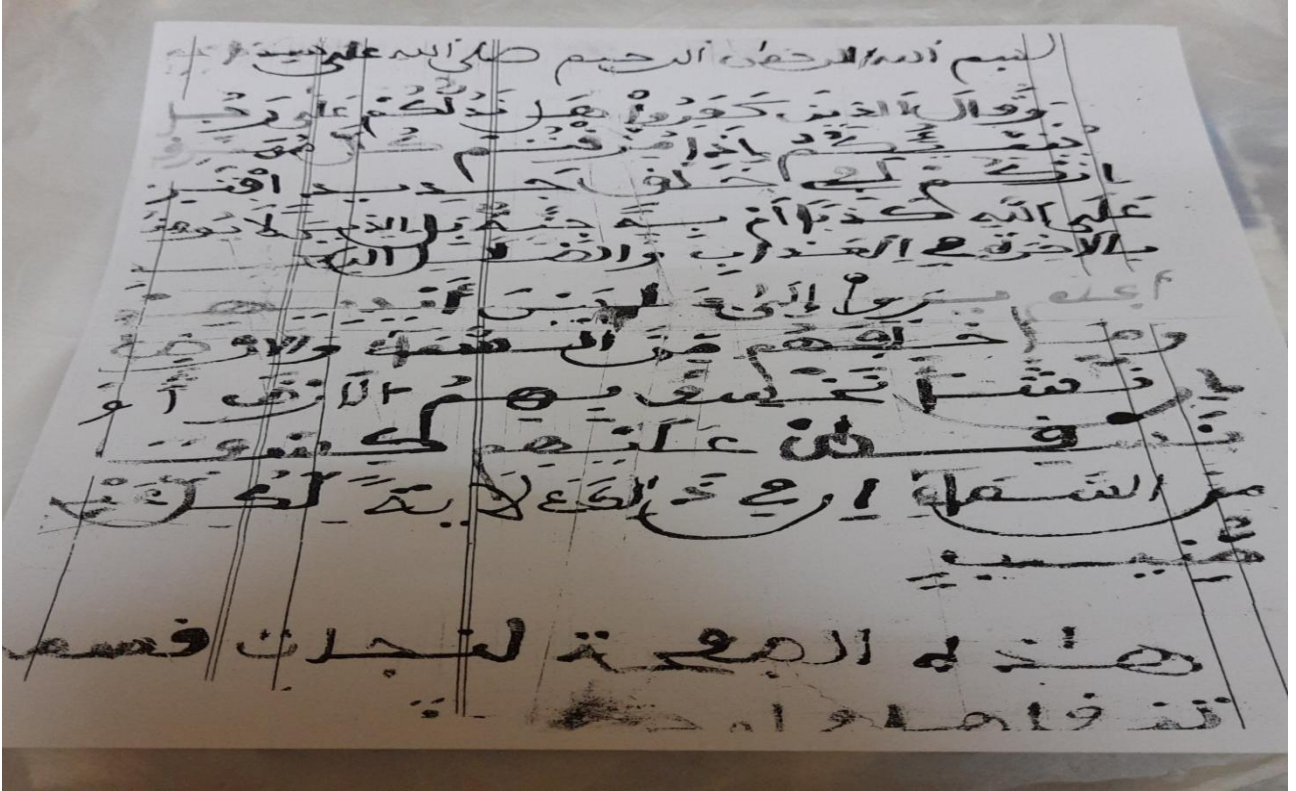 بسم الله الرحمن الرحيم صلى الله على سيدنا
وَقَالَ الذِينَ كَفَرُواْ هَلْ نَدُلُّكُمْ عَلَى رَجُلٍ
يُنَبِّئُكُمْ إِذَا مُزِّقْتُمْ كُلَّ مُمَزَّقٍ
إِنَّكُمْ لَفِي خَلْقٍ جَدِيدٍ افْتَرَى
عَلَى اللهِ كَذِبًا أَم بِهِ جِنَّةٌ بَلِ الذِينَ لَا يُومِنُونَ
بِالاخِرَةِ فِي العَذَابِ وَالضَّلَالِ البَعِيدِ
أَفَلَمْ يَرَوْاْ إِلَى مَا بَيْنَ أَيْدِيهِمْ
وَمَا خَلْفَهُم مِّنَ السَّمَاءِ وَالارْضِ
إِن نَّشَأْ نَخْسِفْ بِهِمُ الَارْضَ أَوْ
نُسْقِطْ عَلَيْهِمْ كِسْفًا
مِّنَ السَّمَاءِ إِنَّ فِي ذَلِكَ لَايَةً لِّكُلِّ عَبْدٍ
مُّنِيبٍ
هذه الصفحة لنجات قسم